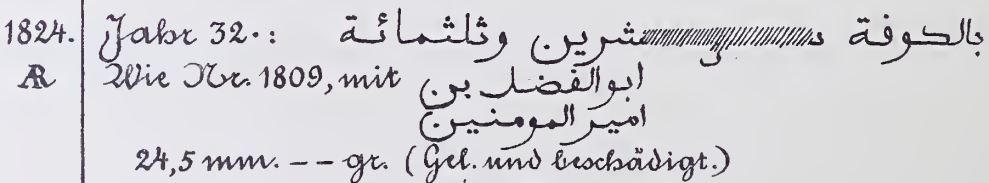 1824. Jahr 32·: بالكوفة س‍ ‍شرين وثلثمائة
AR Wie Nr. 1809, mit ابو الفضل بن
امير المومنين
24,5 mm. – – gr. (Gel. und beschädigt.)